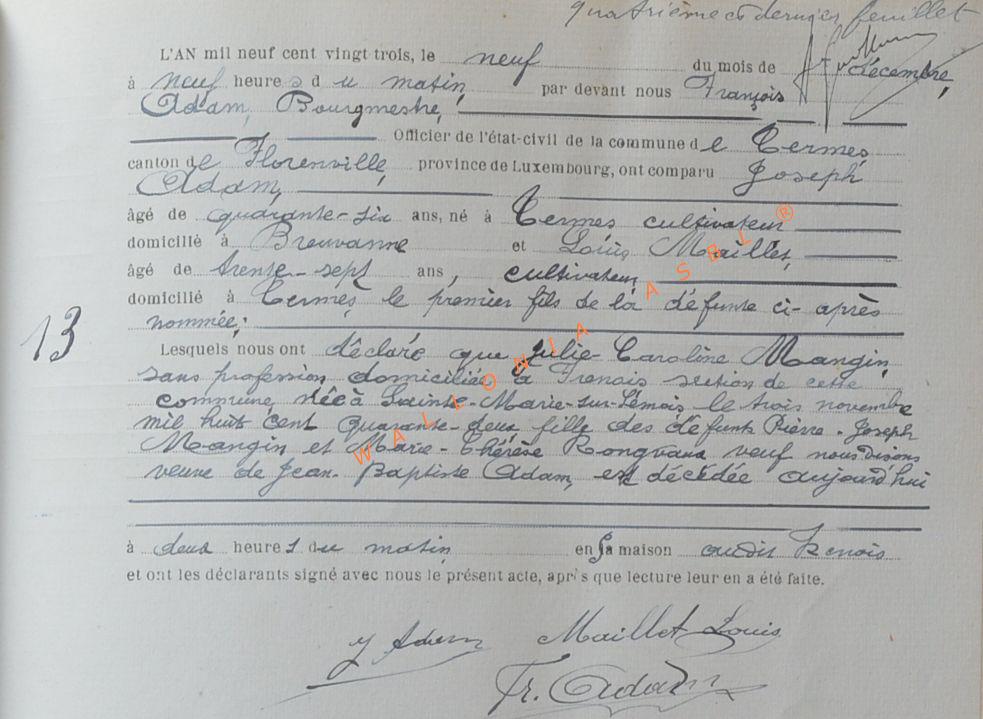 quatrième et dernier feuillet
L'AN mil neuf cent vingt trois, le neuf du mois de décembre,
à neuf heures du matin, par devant nous François
Adam, Bourgmestre,
Officier de l'état-civil de la commune de Termes,
canton de Florenville, province de Luxembourg, ont comparu Joseph
Adam,
âgé de quarante-six ans, né à Termes cultivateur
domicilié à Breuvanne et Louis Maillet,
âgé de trente-sept ans, cultivateur
domicilié à Termes, le premier fils de la défunte ci-après
nommée;
13
Lesquels nous ont déclaré que Julie-Caroline Mangin,
sans profession domiciliée à Frenois section de cette
commune, née à Sainte-Marie-sur-Semois le trois novembre
mil huit cent quarante-deux, fille des défunts Pierre-Joseph
Mangin et Marie-Thérèse Rongvaux veuf nous disons
veuve de Jean-Baptiste Adam, est décédée aujourd'hui
à deux heures du matin, en sa maison audit Frenois
et ont les déclarants signé avec nous le présent acte, après que lecture leur en a été faite.
J Adam Maillet Louis
Fr. Adam
WALLONIA ASBL ®